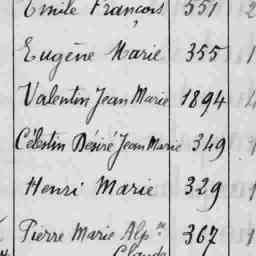 Emile François 551 2
Eugène Marie 355 1
Valentin Jean Marie 1894 4
Célestin Désiré Jean Marie 349 1
Henri Marie 329 1
Pierre Marie Alp.se 367 1
Claude